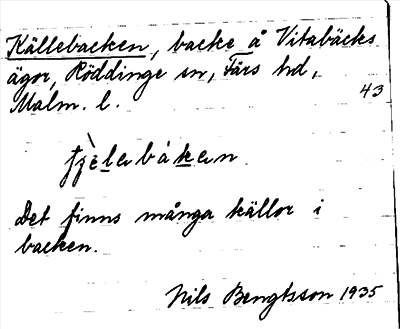 Källebacken, backe å Vitabäcks
ägor, Röddinge sn, Färs hd,
Malm. l.
43
Det finns många källor i
backen.
Nils Bengtsson 1935